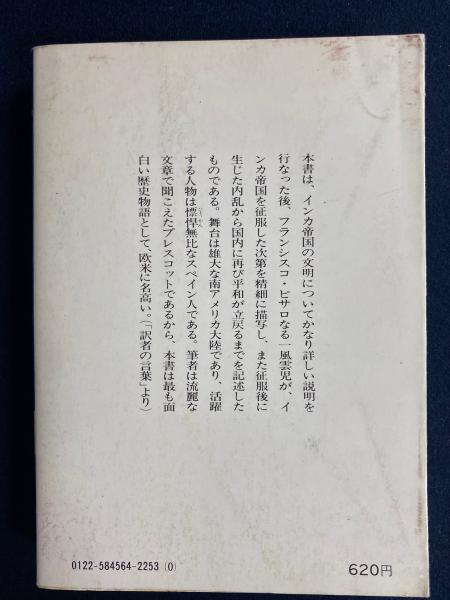 本書は、インカ帝国の文明についてかなり詳しい説明を
行なった後、フランシスコ・ピサロなる一風雲児が、イ
ンカ帝国を征服した次第を精細に描写し、また征服後に
生じた内乱から国内に再び平和が立戻るまでを記述した
ものである。舞台は雄大な南アメリカ大陸であり、活躍
する人物は慓悍無比なスペイン人である。筆者は流麗な
文章で聞こえたプレスコットであるから、本書は最も面
白い歴史物語として、欧米に名高い。(「訳者の言葉」より)
0122-584564-2253(0)
620円